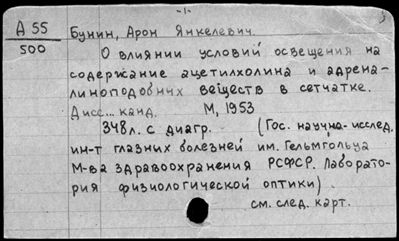 -1-
А 55
500
Бунин, Арон Янкелевич.
О влиянии условий освещения на
содержание ацетилхолина и адрена-
линоподобних веществ в сетчатке.
Дисс... канд. М, 1953
348л. с диагр. (Гос. научна-исслед.
ин-т глазных болезней им. Гельмгольца
М-ва здравоохранения РСФСР. Лаборато-
рия физиологической оптики)
см. след. карт.